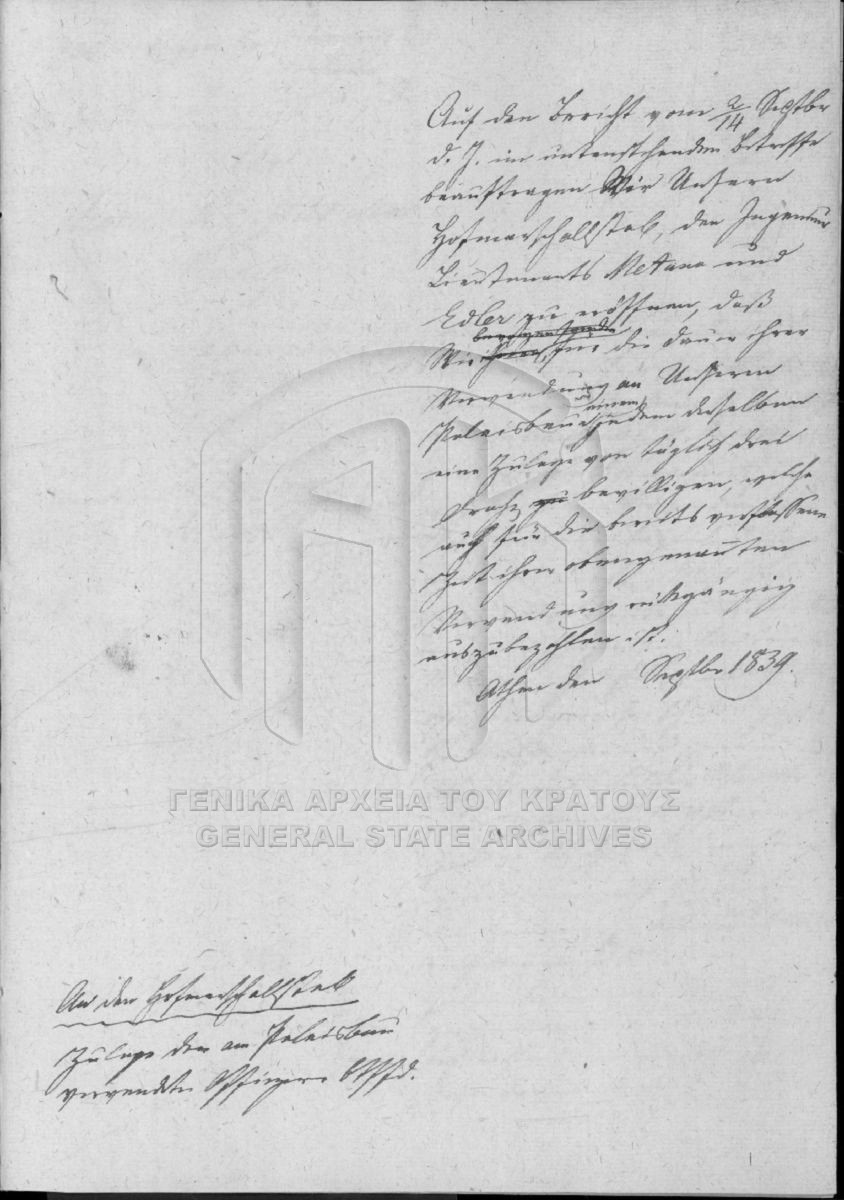 Auf den Bericht vom 2/14 Septbr
d. J. im untenstehenden Betreffe
beauftragen Wir Unsern
Hofmarschallstab, den Ingenieur
Lieutenants Metaxa und
Edler zu eröffnen, daß
Wir für die Dauer ihrer
Verwendung an Unserm
Palaisbau einem jedem derselben
eine Zulage von täglich drei
Drachm zu bewilligen, welche
auch für die bereits verflossene
Zeit ihrer obengenannten
Verwendung rückgängig
auszubezahlen ist.
Athen den Septbr 1839.
ΓΕΝΙΚΑ ΑΡΧΕΙΑ ΤΟΥ ΚΡΑΤΟΥΣ
GENERAL STATE ARCHIVES
An den Hofmarschallstab
Zulage der am Palaisbau
verwendeten Offiziere btffd.